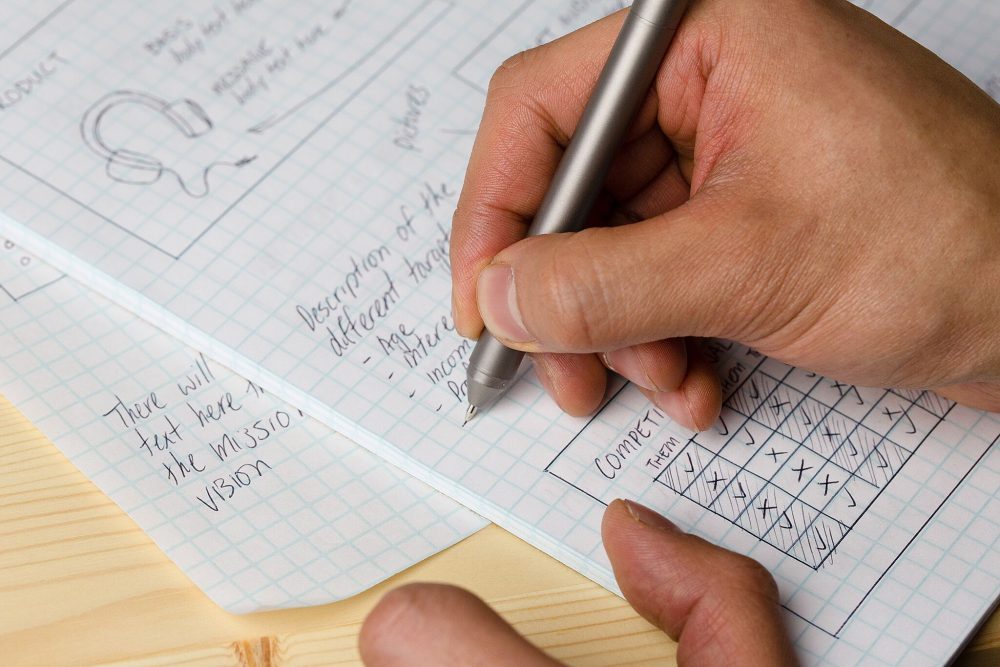 PRODUCT
BASIS
body text here
MESSAGE
body text here
Pictures
Description of the
different target
- Age
- Intere
- incom
-
COMPETI
THEM
There will
text here th
the missio
vision